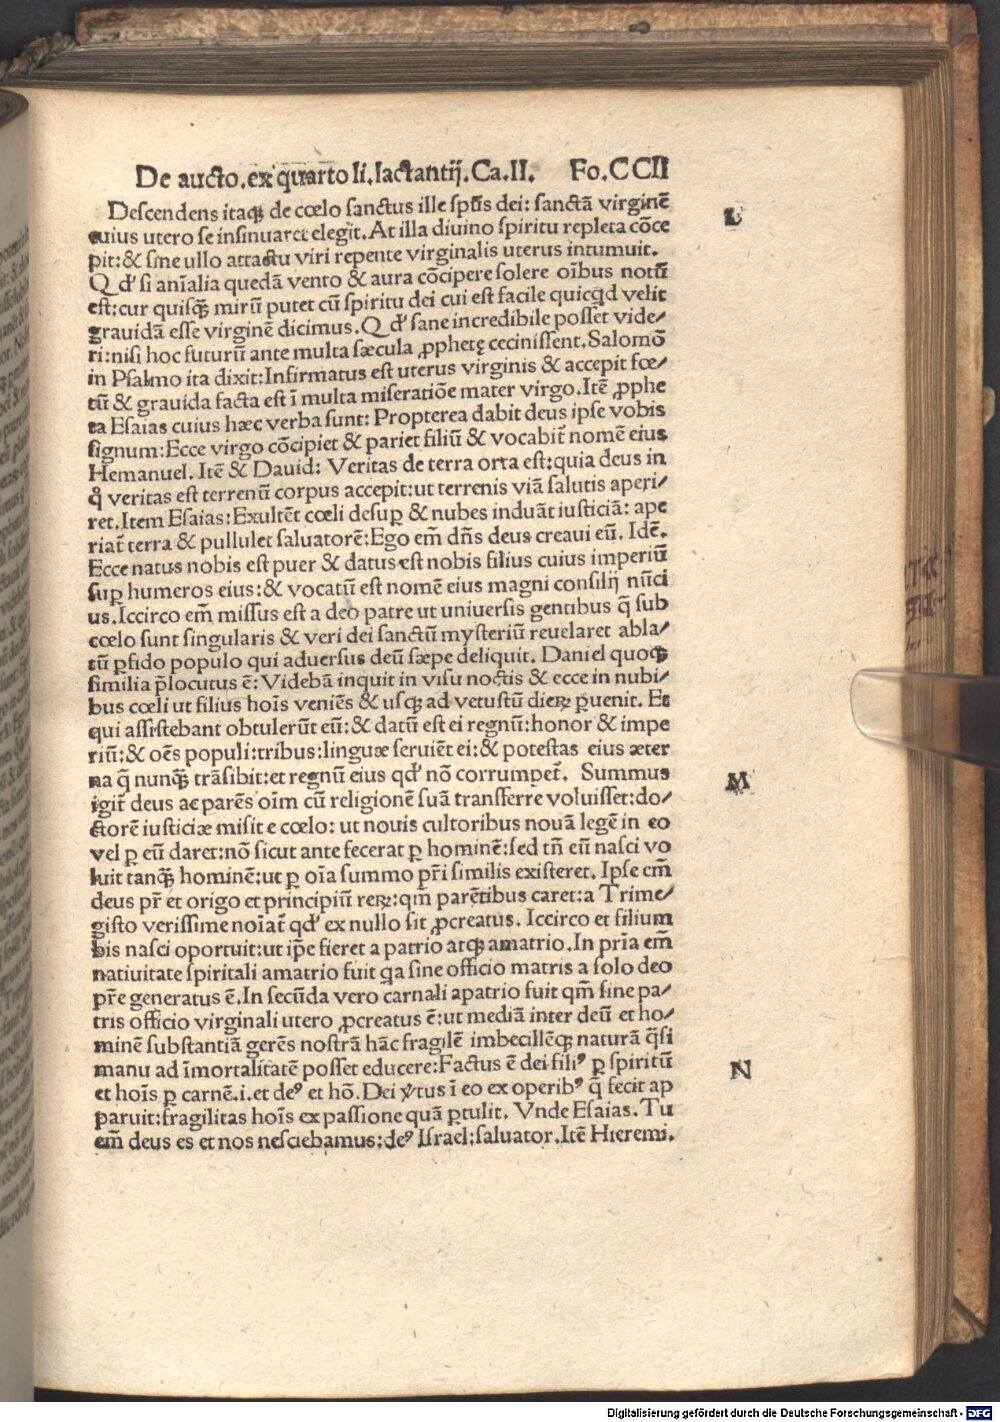 De aucto.ex quarto li.lactantij.Ca.II. Fo.CCII
Descendens itaqꝫ de cœlo sanctus ille spūs dei: sanctā virginē
L
cuius utero se insinuaret elegit. At illa diuino spiritu repleta cōce
pit:& sine ullo attactu viri repente virginalis uterus intumuit.
Q d' si aīalia quedā vento & aura cōcipere solere oībus notū
est:cur quisqꝫ mirū putet cū spiritu dei cui est facile quicqd velit
grauidā esse virginē dicimus. Q d' sane incredibile posset vide/
ri:nisi hoc futurū ante multa sæcula ꝓphetę cecinissent. Salomō
in Psalmo ita dixit:Infirmatus est uterus virginis & accepit fœ/
tū & grauida facta est ī multa miseratiōe mater virgo. Itē ꝓphe
ta Esaias cuius hæc verba sunt: Propterea dabit deus ipse vobis
signum:Ecce virgo cōcipiet & pariet filiū & vocabit̄ nomē eius
Hemanuel. Itē & Dauid: Veritas de terra orta est:quia deus in
q̊ veritas est terrenū corpus accepit:ut terrenis viā salutis aperi/
ret. Item Esaias:Exultēt cœli desuꝑ & nubes induāt iusticiā: ape
riat̄ terra & pullulet saluatorē:Ego em̄ dn̄s deus creaui eū. Idē.
Ecce natus nobis est puer & datus est nobis filius cuius imperiū
suꝑ humeros eius:& vocatū est nomē eius magni consilij nūci
us. Iccirco em̄ missus est a deo patre ut uniuersis gentibus q̄ sub
cœlo sunt singularis & veri dei sanctū mysteriū reuelaret abla/
tū ꝑfido populo qui aduersus deū sæpe deliquit. Daniel quoqꝫ
similia p̄locutus ē: Videbā inquit in visu noctis & ecce in nubi/
bus cœli ut filius hoīs veniēs & usqꝫ ad vetustū dieꝝ ꝑuenit. Et
qui assistebant obtulerūt eū:& datū est ei regnū:honor & impe
riū:& oēs populi:tribus:linguæ seruiēt ei:& potestas eius æter
na q̄ nunqꝫ trāsibit:et regnū eius qd' nō corrumpet̄. Summus
M
igit̄ deus ac parēs oīm cū religionē suā transferre voluisset:do/
ctorē iusticiæ misit e cœlo: ut nouis cultoribus nouā legē in eo
vel ꝑ eū daret:nō sicut ante fecerat ꝑ hominē:sed tn̄ eū nasci vo
luit tanqꝫ hominē:ut ꝑ oīa summo pr̄i similis existeret. Ipse em̄
deus pr̄ et origo et principiū reꝝ:qm̄ parētibus caret:a Trime/
gisto verissime noīat̄ qd' ex nullo sit ꝓcreatus. Iccirco et filium
bis nasci oportuit:ut ip̄e fieret a patrio atqꝫ amatrio. In pria em̄
natiuitate spiritali amatrio fuit qa sine officio matris a solo deo
pr̄e generatus ē. In secūda vero carnali apatrio fuit qm̄ sine pa/
tris officio virginali utero ꝓcreatus ē:ut mediā inter deū et ho/
minē substantiā gerēs nostrā hāc fragilē imbecillēqꝫ naturā q̄si
manu ad īmortalitatē posset educere:Factus ē dei filiꝰ ꝑ spiritū
N
et hoīs ꝑ carnē.i.et deꝰ et hō. Dei v̊tus ī eo ex operibꝰ q̄ fecit ap
paruit:fragilitas hoīs ex passione quā ꝑtulit. Vnde Esaias. Tu
em̄ deus es et nos nesciebamus:deꝰ Israel:saluator. Itē Hieremi.
Digitalisierung gefördert durch die Deutsche Forschungsgemeinschaft - DFG